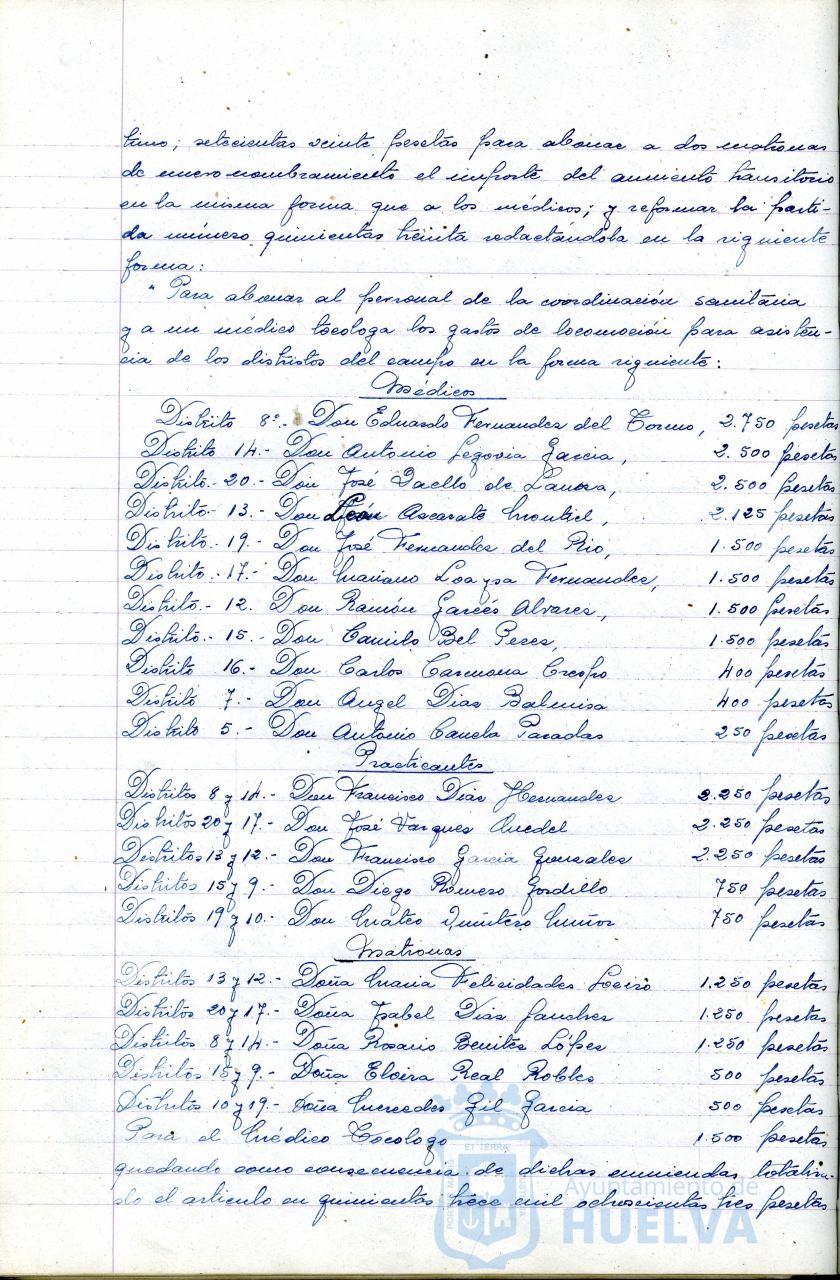 timo; setecientas veinte pesetas para abonar a dos matronas
de nuevo nombramiento el importe del aumento transitorio
en la misma forma que a los médicos; y reformar la parti-
da número quinientas treinta redactándola en la siguiente
forma:
" Para abonar al personal de la coordinación sanitaria
y a un médico tocologa los gastos de locomoción para asisten-
cia de los distritos del campo en la forma siguiente:
Médicos
Distrito 8º.- Don Eduardo Fernandez del Torno, 2.750 pesetas
Distrito 14.- Don Antonio Segovia Garcia, 2.500 pesetas
Distrito.- 20.- Don José de 2.500 pesetas
Distrito.- 13.- Don León Ascarate Montiel, 2.125 pesetas
Distrito.- 19.- Don José Fernandez del Rio, 1.500 pesetas
Distrito.- 17.- Don Mariano Loaysa Fernandez, 1.500 pesetas
Distrito.- 12. Don Ramón Garcés Alvarez, 1.500 pesetas
Distrito.- 15.- Don Camilo Bel Perez, 1.500 pesetas
Distrito 16.- Don Carlos Carmona Crespo 400 pesetas
Distrito 7.- Don Angel Diaz 400 pesetas
Distrito 5.- Don Antonio Canela Paradas 250 pesetas
Practicantes
Distritos 8 y 14.- Don Francisco Diaz Hernandez 2.250 pesetas
Distritos 20 y 17.- Don José Vazquez 2.250 pesetas
Distritos 13 y 12.- Don Francisco Garcia Gonzalez 2.250 pesetas
Distritos 15 y 9.- Don Diego Romero Gordillo 750 pesetas
Distritos 19 y 10.- Don Mateo Quintero Muñoz 750 pesetas
Matronas
Distritos 13 y 12.- Doña Maria Felicidades 1.250 pesetas
Distritos 20 y 17.- Doña Isabel Diaz Sanchez 1.250 pesetas
Distritos 8 y 14.- Doña Rosario Benitez López 1.250 pesetas
Distritos 15 y 9.- Doña Elvira Real Robles 500 pesetas
Distritos 10 y 19.- Doña Mercedes Gil Garcia 500 pesetas
Para el Médico Tocologo 1.500 pesetas
quedando como consecuencia de dichas enmiendas totaliza-
do el articulo en quinientas trece mil ochocientas tres pesetas
ET TERRA
Ayuntamiento de
HUELVA